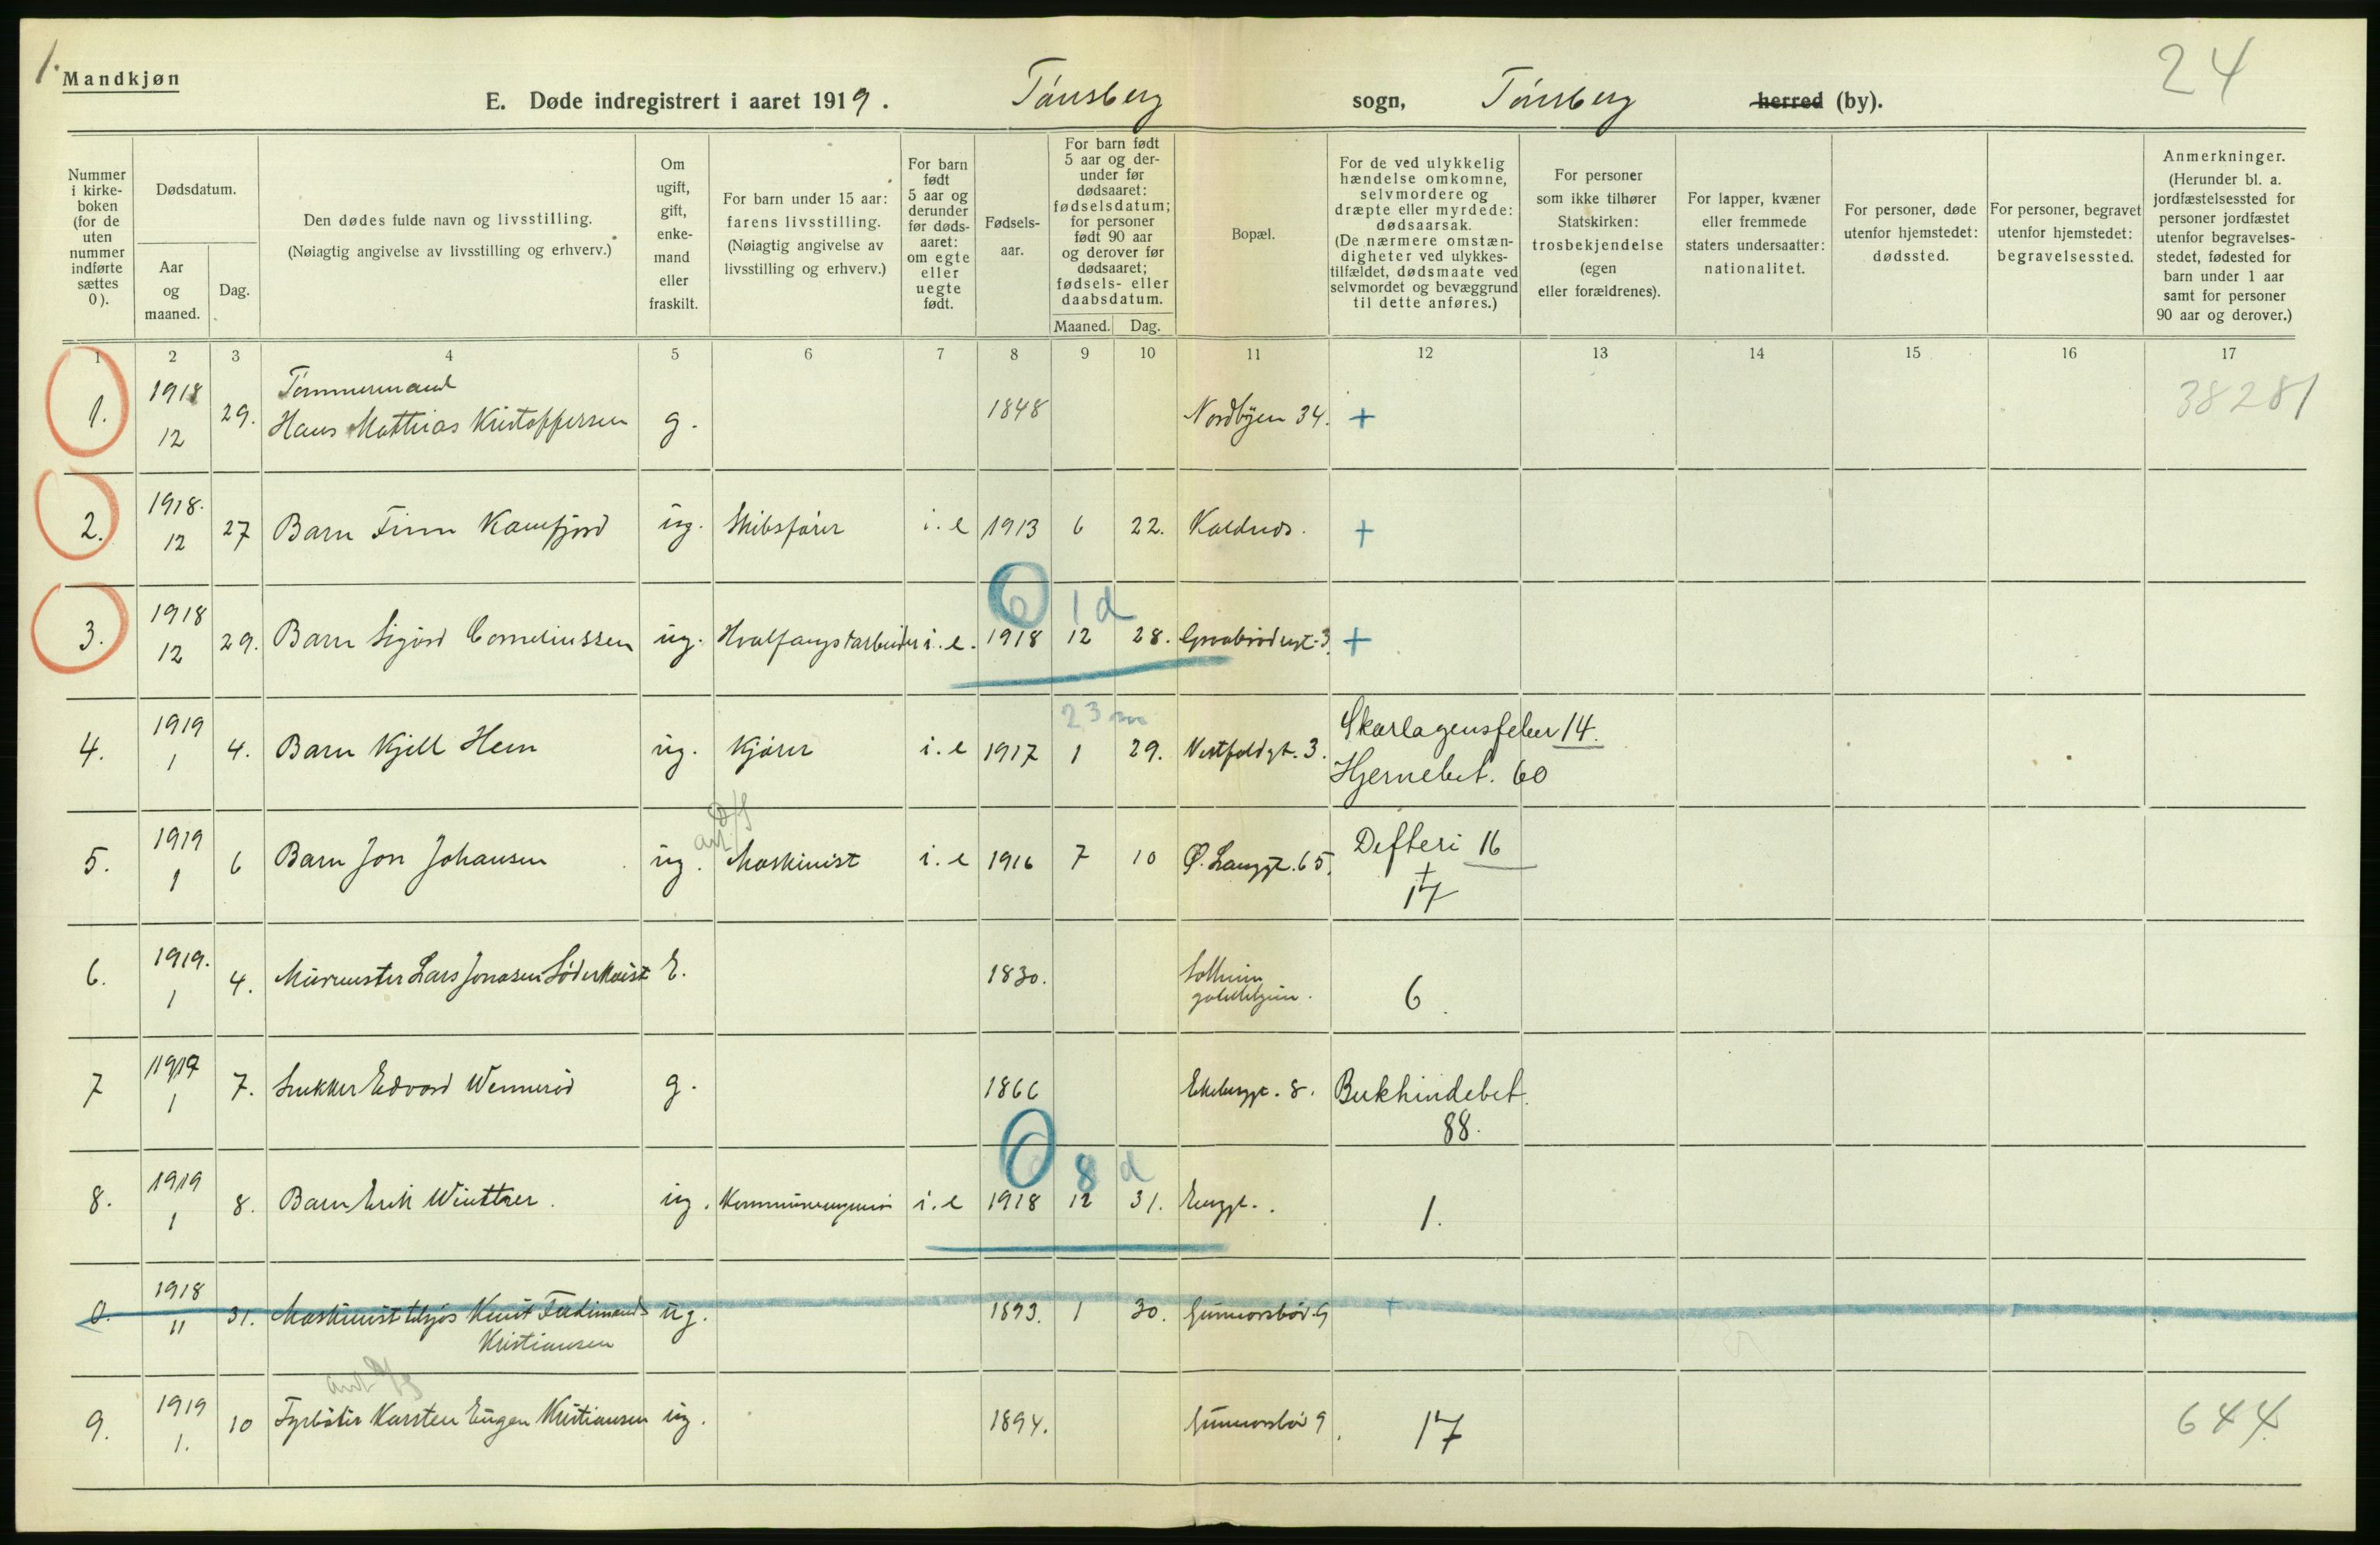 1.
Mandkjøn
24
E. Døde indregistrert i aaret 1919.
Tønsberg sogn, Tønsberg herred (by).
Nummer i kirke- boken (for de uten nummer indførte sættes 0).
Dødsdatum.
Aar og maaned.
Dag.
Den dødes fulde navn og livsstilling.
(Nøiagtig angivelse av livsstilling og erhverv.)
Om ugift, gift, enke- mand eller fraskilt.
For barn under 15 aar: farens livsstilling. (Nøiagtig angivelse av livsstilling og erhverv.)
For barn født 5 aar og derunder før døds- aaret: om egte eller uegte født.
Fødsels- aar.
For barn født 5 aar og der- under før dødsaaret: fødselsdatum; for personer født 90 aar og derover før dødsaaret; fødsels- eller daabsdatum.
Maaned. Dag.
Bopæl.
For de ved ulykkelig hændelse omkomne, selvmordere og dræpte eller myrdede: dødsaarsak. (De nærmere omstæn- digheter ved ulykkes- tilfældet, dødsmaate ved selvmordet og bevæggrund til dette anføres.)
For personer som ikke tilhører Statskirken: trosbekjendelse (egen eller forældrenes).
For lapper, kvæner eller fremmede staters undersaatter: nationalitet.
For personer, døde utenfor hjemstedet: dødssted.
For personer, begravet utenfor hjemstedet: begravelsessted.
Anmerkninger. (Herunder bl. a. jordfæstelsessted for personer jordfæstet utenfor begravelses- stedet, fødested for barn under 1 aar samt for personer 90 aar og derover.)
1 2 3 4 5 6 7 8 9 10 11 12 13 14 15 16 17
1. 1918 12 29. Tømmermand
Hans Mathias Kristoffersen g. 1848 Nordbyen 34. + 38281
2. 1918. 12 27 Barn Finn Kamfjord ug. Skibsfører i. e 1913 6 22. Kaldnes. +
0 1 d
3. 1918 12 29. Barn Sigurd Corneliussen ug. Hvalfangstarbeider i. e. 1918 12 28. Graabrødregt. 3. +
23 m
4. 1919 1 4. Barn Kjell Hem ug. Kjører i. e 1917 1 29. Vestfoldgt. 3. Skarlagensfeber 14.
Hjernebet. 60
5. 1919 1 6 Barn Jon Johansen ug. Maskinist i. e 1916 7 10 Ø. Langgt. 65. Difteri 16
+
17
6. 1919. 1 4. Murmester Lars Jonasen Söderkvist E. 1830. Solheim gamlehjem. 6.
7 1919 1 7. Snekker Edvard Wennerød g. 1866 Ekebergt. 8. Bukhindebet.
88.
0 8 d
8. 1919 1 8. Barn Erik Winttner. ug. Kommuneingeniør i. e 1918 12 31. Enggt. 1.
0. 1918 11 31. Maskinist tilsjøs Knut Ferdinands ug. 1893. 1 30. Gunnarsbø 9 +
Kristiansen
9. 1919 1. 10 Fyrbøter Karsten Eugen Kristiansen ug. 1894. Gunnarsbø 9. 17 644